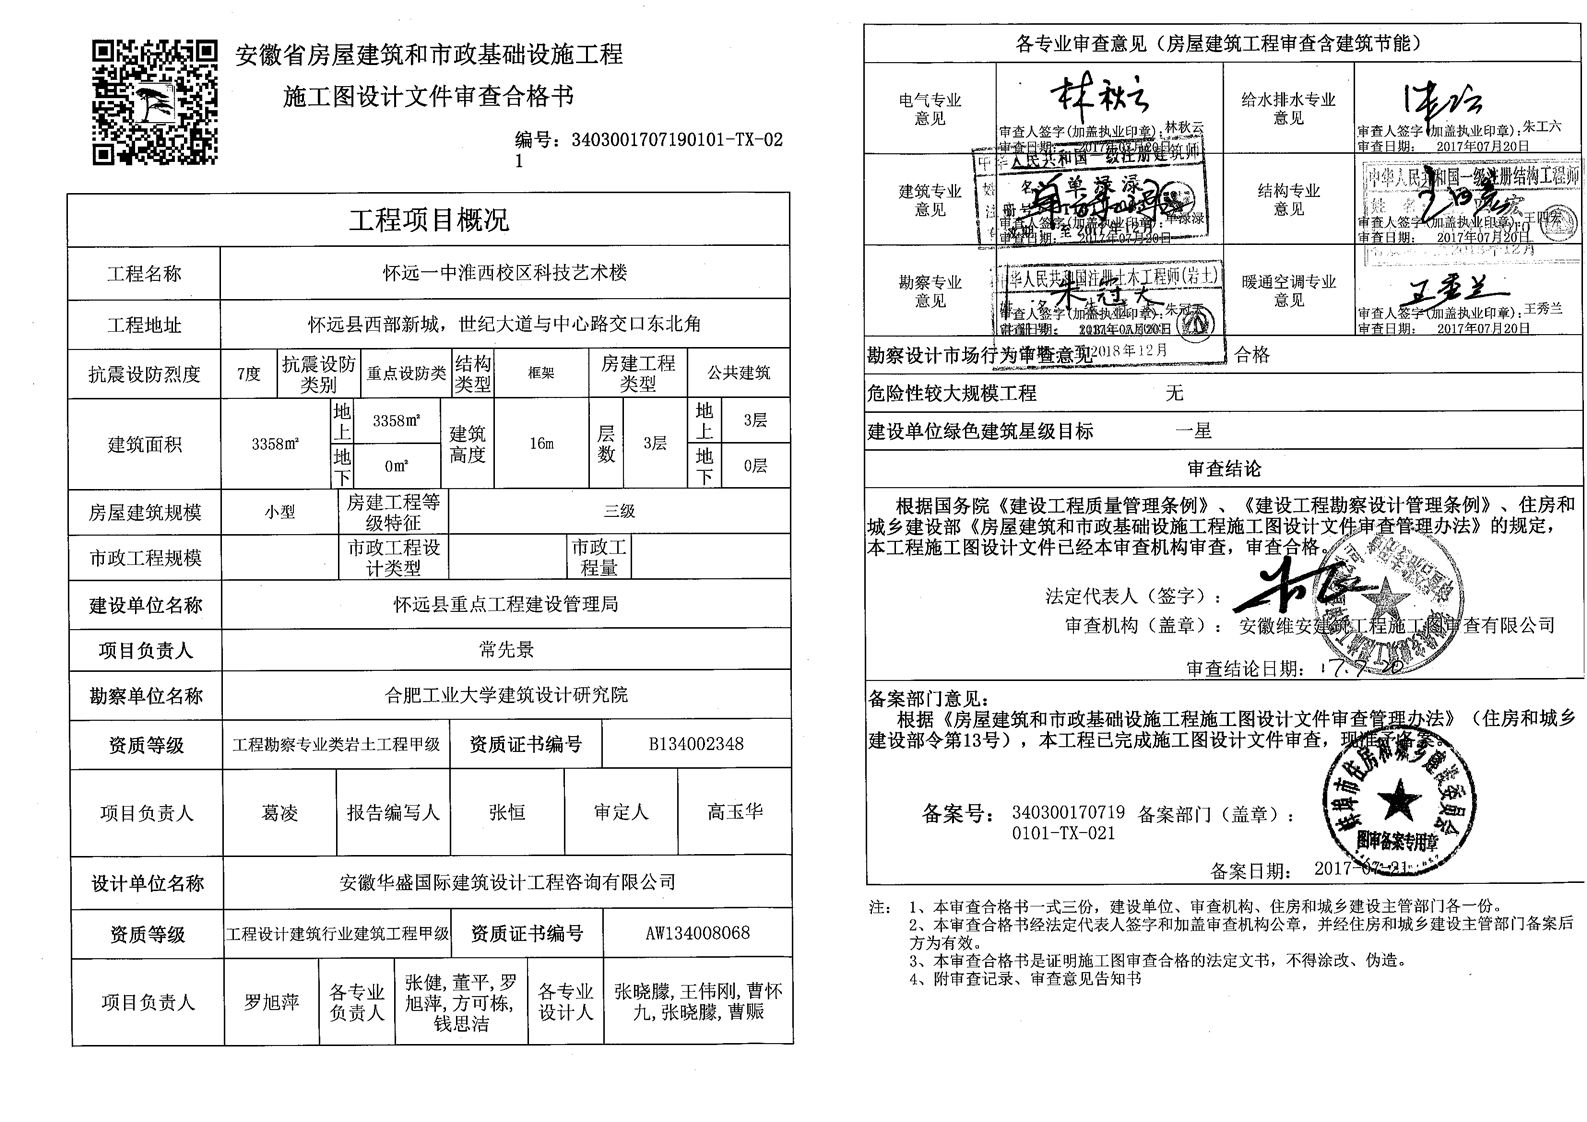 安徽省房屋建筑和市政基础设施工程
施工图设计文件审查合格书
编号: 3403001707190101-TX-02
1
工程项目概况
工程名称 怀远一中淮西校区科技艺术楼
工程地址 怀远县西部新城，世纪大道与中心路交口东北角
抗震设防烈度 7度 抗震设防类别 重点设防类 结构类型 框架 房建工程类型 公共建筑
建筑面积 3358㎡ 地上 3358㎡ 建筑高度 16m 层数 3层 地上 3层
地下 0㎡ 地下 0层
房屋建筑规模 小型 房建工程等级特征 三级
市政工程规模 市政工程设计类型 市政工程量
建设单位名称 怀远县重点工程建设管理局
项目负责人 常先景
勘察单位名称 合肥工业大学建筑设计研究院
资质等级 工程勘察专业类岩土工程甲级 资质证书编号 B134002348
项目负责人 葛凌 报告编写人 张恒 审定人 高玉华
设计单位名称 安徽华盛国际建筑设计工程咨询有限公司
资质等级 工程设计建筑行业建筑工程甲级 资质证书编号 AW134008068
项目负责人 罗旭萍 各专业负责人 张健,董平,罗旭萍,方可栋,钱思洁 各专业设计人 张晓朦,王伟刚,曹怀九,张晓朦,曹赈
各专业审查意见（房屋建筑工程审查含建筑节能）
电气专业意见 林秋云 审查人签字(加盖执业印章): 林秋云
审查日期: 2017年07月20日
给水排水专业意见 朱工六 审查人签字(加盖执业印章): 朱工六
审查日期: 2017年07月20日
建筑专业意见 中华人民共和国一级注册建筑师
姓名 单渌渌
审查人签字(加盖执业印章): 单渌渌
审查日期: 2017年07月20日
至2017年12月
结构专业意见 中华人民共和国一级注册结构工程师
姓名 王四宏
审查人签字(加盖执业印章): 王四宏
审查日期: 2017年07月20日
勘察专业意见 中华人民共和国注册土木工程师(岩土)
姓名 朱冠天
审查人签字(加盖执业印章): 朱冠天
审查日期: 2017年07月20日
至2018年12月
暖通空调专业意见 王秀兰 审查人签字(加盖执业印章): 王秀兰
审查日期: 2017年07月20日
勘察设计市场行为审查意见 合格
危险性较大规模工程 无
建设单位绿色建筑星级目标 一星
审查结论
根据国务院《建设工程质量管理条例》、《建设工程勘察设计管理条例》、住房和
城乡建设部《房屋建筑和市政基础设施工程施工图设计文件审查管理办法》的规定，
本工程施工图设计文件已经本审查机构审查，审查合格。
法定代表人（签字）:
审查机构（盖章）: 安徽维安建筑工程施工图审查有限公司
审查结论日期: 17.7.20
备案部门意见:
根据《房屋建筑和市政基础设施工程施工图设计文件审查管理办法》（住房和城乡
建设部令第13号），本工程已完成施工图设计文件审查，现准予备案。
蚌埠市住房和城乡建设委员会
图审备案专用章
备案号: 340300170719 备案部门（盖章）:
0101-TX-021
备案日期: 2017-07-21
注: 1、本审查合格书一式三份，建设单位、审查机构、住房和城乡建设主管部门各一份。
2、本审查合格书经法定代表人签字和加盖审查机构公章，并经住房和城乡建设主管部门备案后
方为有效。
3、本审查合格书是证明施工图审查合格的法定文书，不得涂改、伪造。
4、附审查记录、审查意见告知书